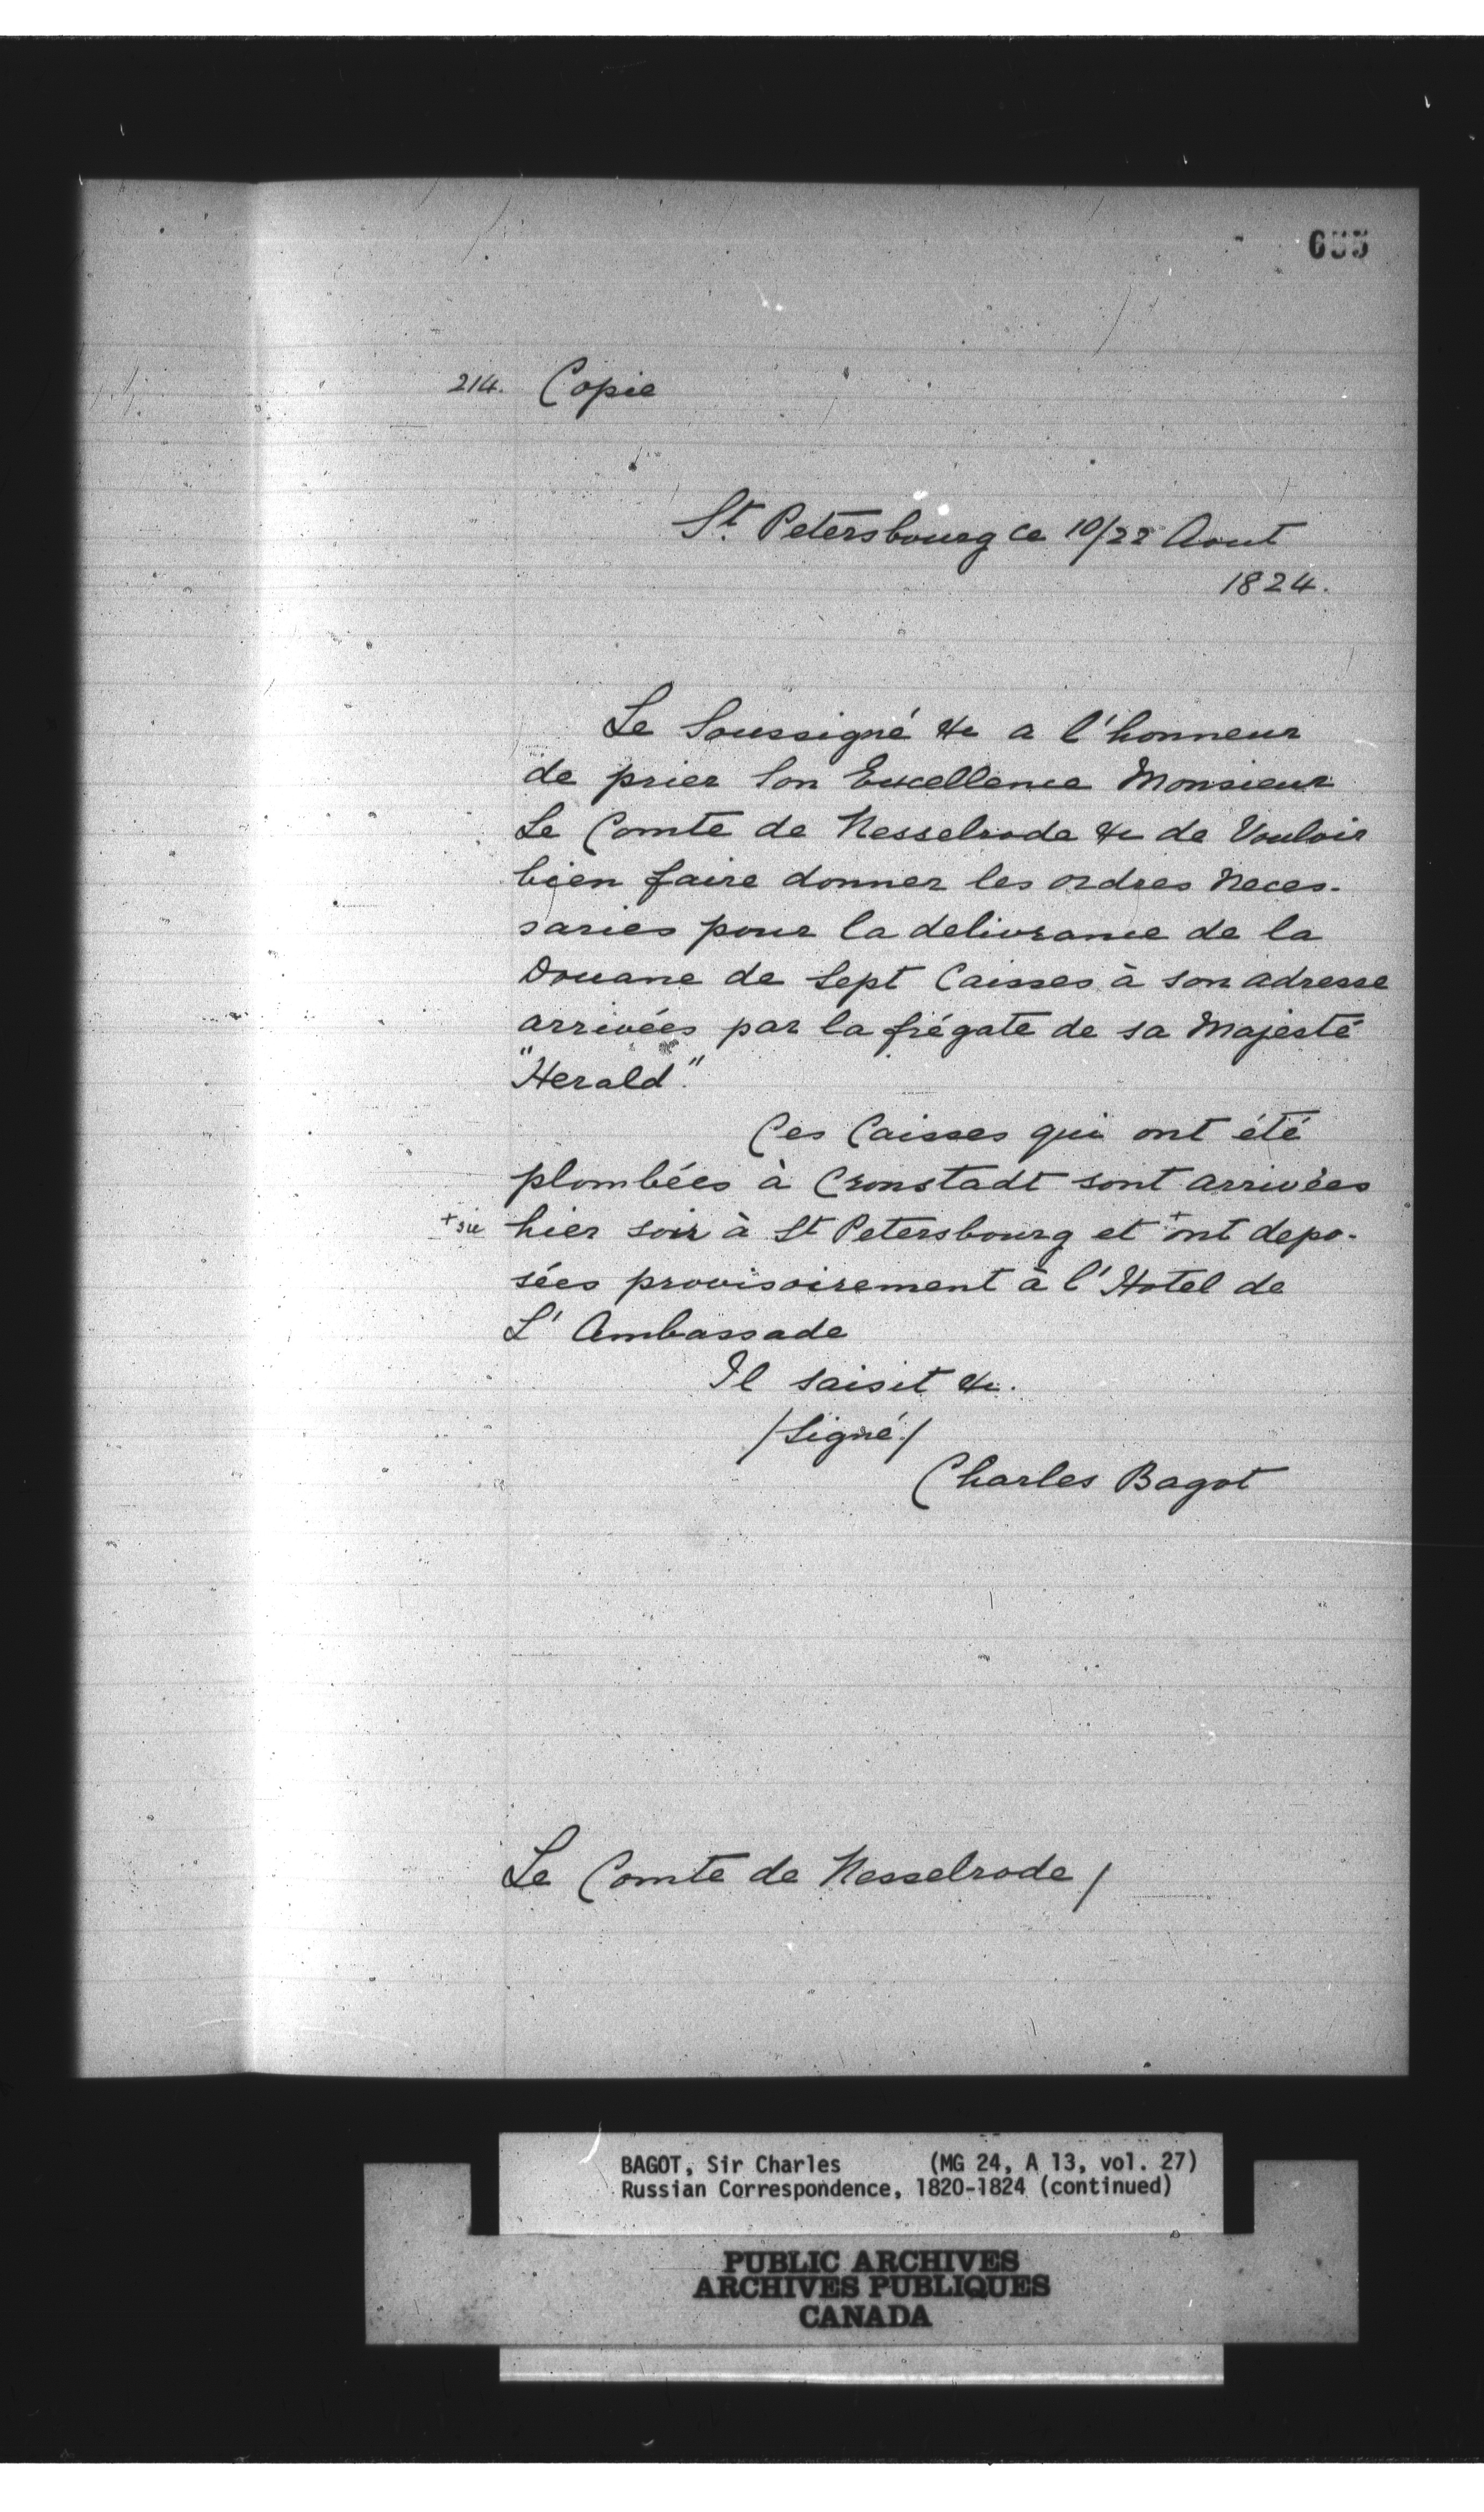 655
214. Copie
St. Petersbourg ce 10/22 Aout
1824.
Le Soussigné &c a l'honneur
de prier Son Excellence Monsieur
Le Comte de Nesselrode &c de Vouloir
bien faire donner les ordres neces-
saries pour la delivrance de la
Douane de Sept Caisses à son adresse
arrivées par la frégate de sa Majesté
"Herald."
Ces Caisses qui ont été
plombées à Cronstadt sont arrivées
+ sic hier soir à St Petersbourg et + ont depo-
sées provisoirement à l'Hotel de
L'Ambassade
Il saisit &c.
/Signé./
Charles Bagot
Le Comte de Nesselrode /
BAGOT, Sir Charles (MG 24, A 13, vol. 27)
Russian Correspondence, 1820-1824 (continued)
PUBLIC ARCHIVES
ARCHIVES PUBLIQUES
CANADA